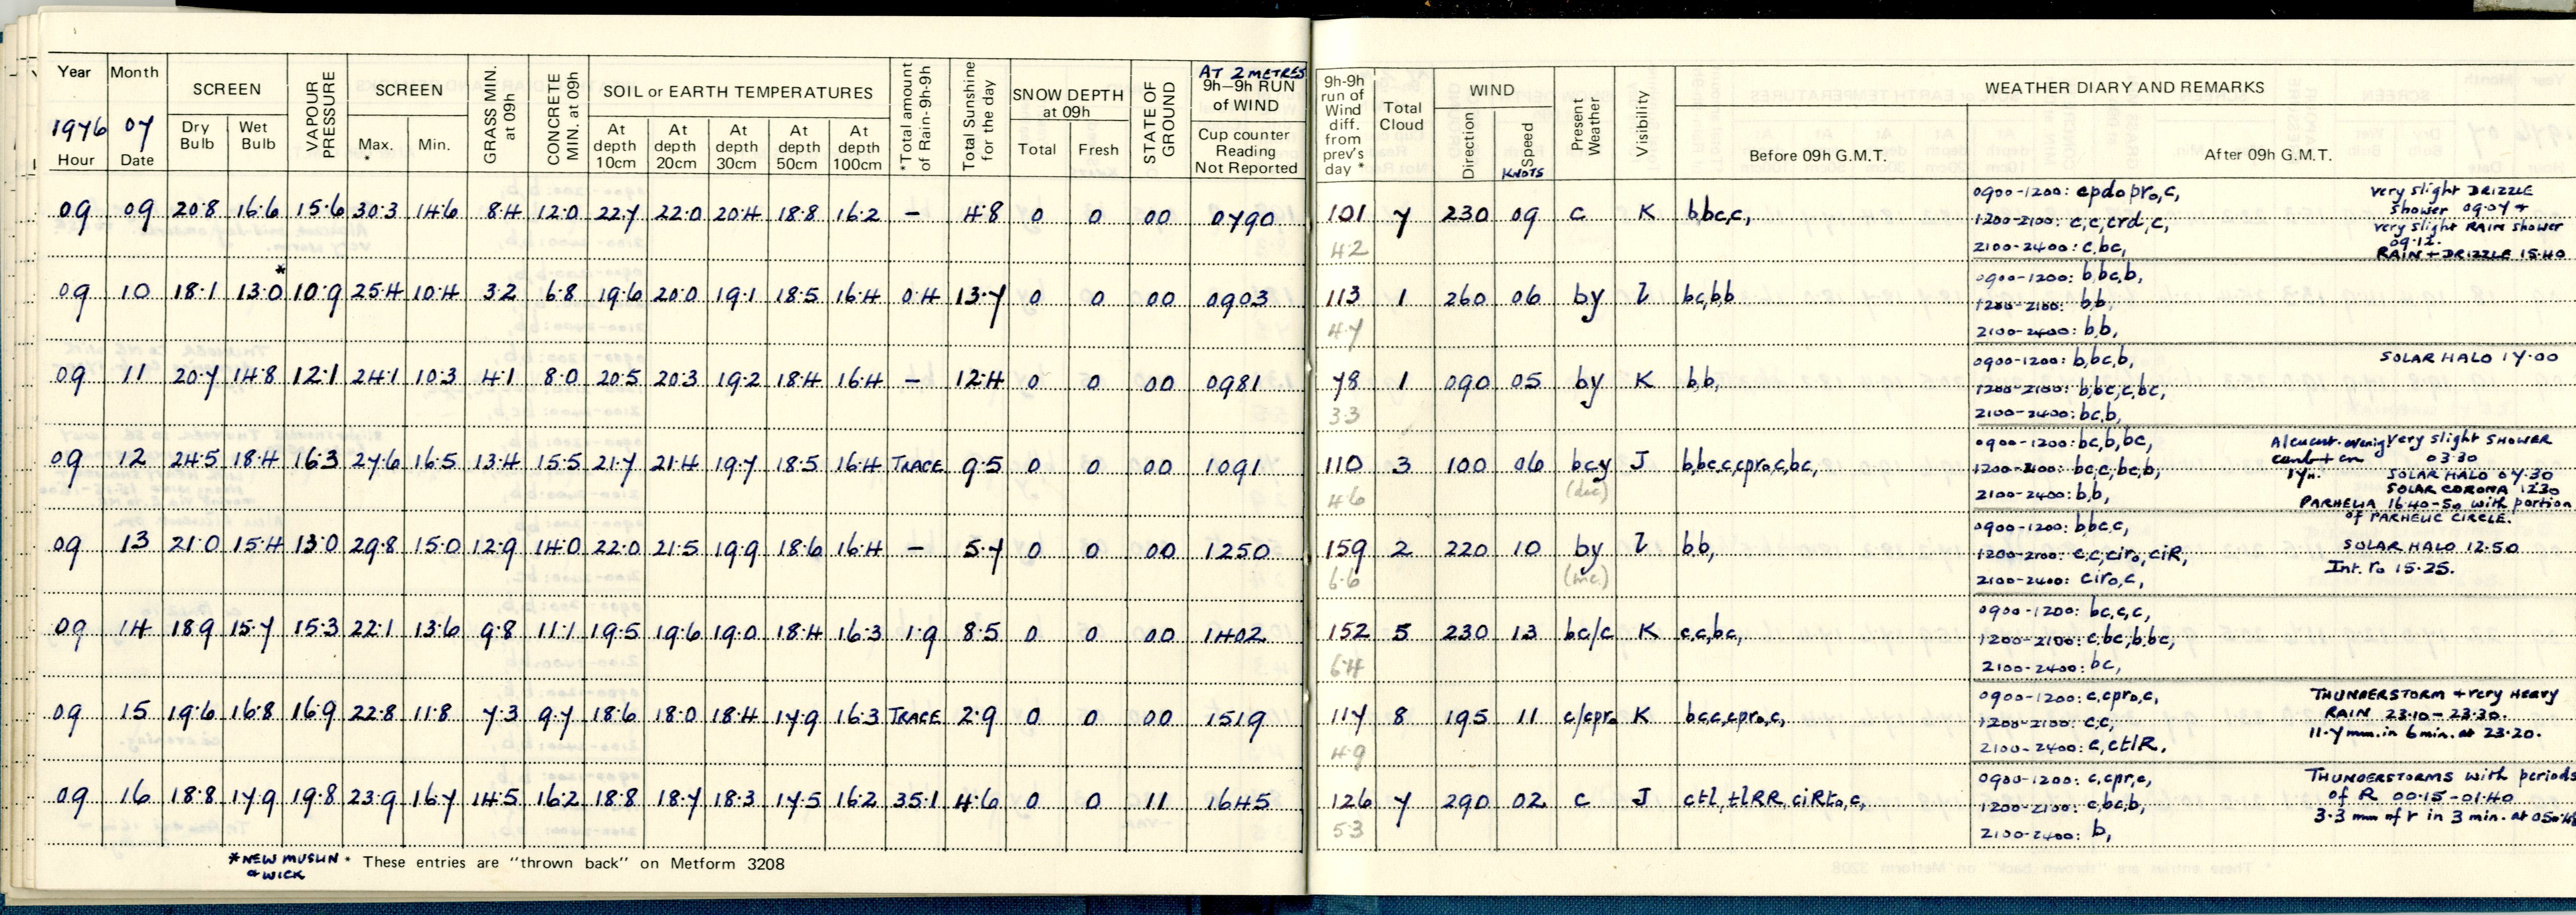 Year Month SCREEN VAPOUR PRESSURE SCREEN GRASS MIN. at 09h CONCRETE MIN. at 09h SOIL or EARTH TEMPERATURES *Total amount of Rain-9h-9h Total Sunshine for the day SNOW DEPTH at 09h STATE OF GROUND AT 2 METRES 9h-9h RUN of WIND 9h-9h run of Wind diff. from prev's day * Total Cloud WIND Present Weather Visibility WEATHER DIARY AND REMARKS
1976 07
Hour Date Dry Bulb Wet Bulb Max. * Min. At depth 10cm At depth 20cm At depth 30cm At depth 50cm At depth 100cm Total Fresh Cup counter Reading Not Reported Direction Speed KNOTS Before 09h G.M.T. After 09h G.M.T.
09 09 20.8 16.6 15.6 30.3 14.6 8.4 12.0 22.7 22.0 20.4 18.8 16.2 – 4.8 0 0 00 0790 101 7 230 09 c K b,bc,c,
42
0900-1200: cpdopro,c,
1200-2100: c,c,crd,c,
2100-2400: c,bc,
very slight DRIZZLE
shower 09.07 +
very slight RAIN shower
09.12.
RAIN + DRIZZLE 15.40
*
09 10 18.1 13.0 10.9 25.4 10.4 3.2 6.8 19.6 20.0 19.1 18.5 16.4 0.4 13.7 0 0 00 0903 113 1 260 06 by l bc,b,b
4.7
0900-1200: b,bc,b,
1200-2100: b,b,
2100-2400: b,b,
09 11 20.7 14.8 12.1 24.1 10.3 4.1 8.0 20.5 20.3 19.2 18.4 16.4 – 12.4 0 0 00 0981 78 1 090 05 by K b,b,
3.3
0900-1200: b,bc,b,
1200-2100: b,bc,c,bc,
2100-2400: bc,b,
SOLAR HALO 17.00
09 12 24.5 18.4 16.3 27.6 16.5 13.4 15.5 21.7 21.4 19.7 18.5 16.4 TRACE 9.5 0 0 00 1091 110 3 100 06 bcy J b,bc,c,cpro,c,bc,
4.6 (dec)
0900-1200: bc,b,bc,
1200-2100: bc,c,bc,b,
2100-2400: b,b,
evening
17h.
very slight SHOWER
03.30
SOLAR HALO 07.30
SOLAR CORONA 12.30
PARHELIA 16.40-50 with portion
of PARHELIC CIRCLE.
09 13 21.0 15.4 13.0 29.8 15.0 12.9 14.0 22.0 21.5 19.9 18.6 16.4 – 5.7 0 0 00 1250 159 2 220 10 by l b,b,
6.6 (inc.)
0900-1200: b,bc,c,
1200-2100: c,c,ciro,ciR,
2100-2400: ciro,c,
SOLAR HALO 12.50
Int. ro 15.25.
09 14 18.9 15.7 15.3 22.1 13.6 9.8 11.1 19.5 19.6 19.0 18.4 16.3 1.9 8.5 0 0 00 1402 152 5 230 13 bc/c K c,c,bc,
6.4
0900-1200: bc,c,c,
1200-2100: c,bc,b,bc,
2100-2400: bc,
09 15 19.6 16.8 16.9 22.8 11.8 7.3 9.7 18.6 18.0 18.4 17.9 16.3 TRACE 2.9 0 0 00 1519 117 8 195 11 c/cpro K bc,c,cpro,c,
4.9
0900-1200: c,cpro,c,
1200-2100: c,c,
2100-2400: c,ctlR,
THUNDERSTORM + very Heavy
RAIN 23.10-23.30.
11.7 mm. in 6 min. at 23.20.
09 16 18.8 17.9 19.8 23.9 16.7 14.5 16.2 18.8 18.7 18.3 17.5 16.2 35.1 4.6 0 0 11 1645 126 7 290 02 c J ctl,tlRR,ciRto,c,
5.3
0900-1200: c,cpr,c,
1200-2100: c,bc,b,
2100-2400: b,
THUNDERSTORMS with periods
of R 00.15-01.40
3.3 mm of r in 3 min. at
*NEW MUSLIN
& WICK
* These entries are "thrown back" on Metform 3208